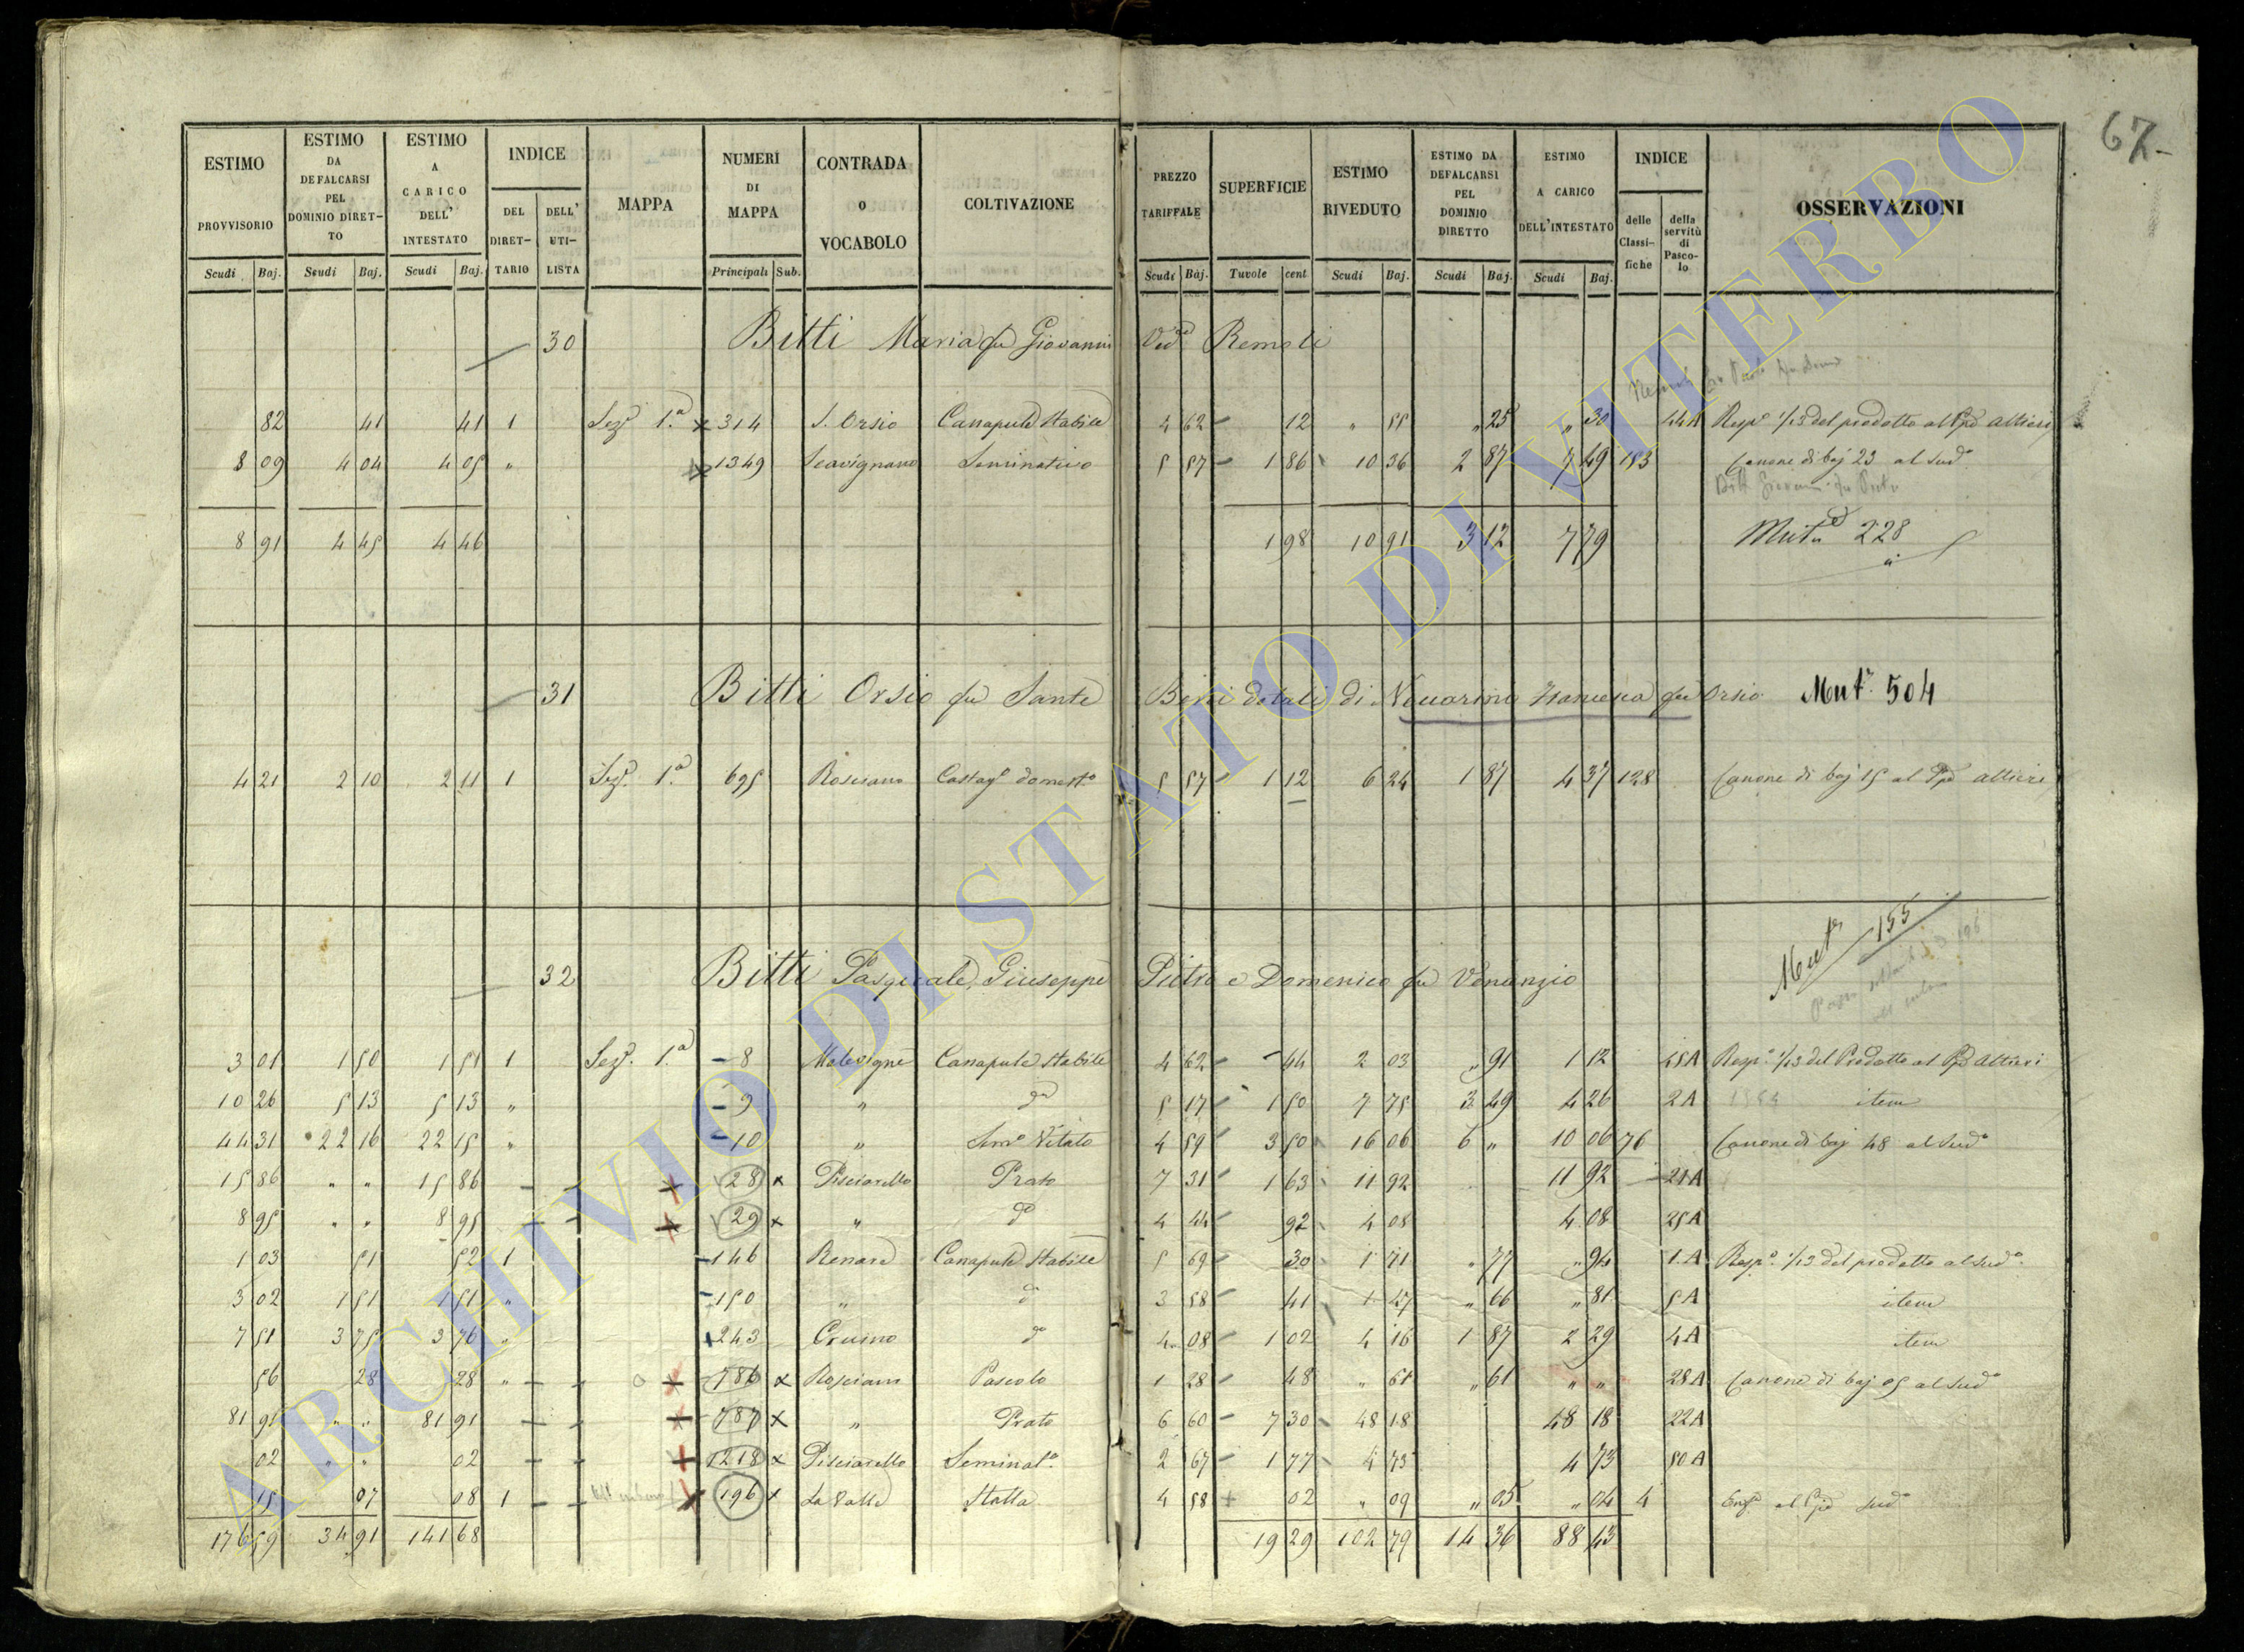 67-
ESTIMO PROVVISORIO Scudi Baj. ESTIMO DA DEFALCARSI PEL DOMINIO DIRETTO Scudi Baj. ESTIMO A CARICO DELL' INTESTATO Scudi Baj. INDICE DEL DIRETTARIO DELL' UTILISTA MAPPA NUMERI DI MAPPA Principali Sub. CONTRADA O VOCABOLO COLTIVAZIONE PREZZO TARIFFALE Scudi Baj. SUPERFICIE Tavole cent ESTIMO RIVEDUTO Scudi Baj. ESTIMO DA DEFALCARSI PEL DOMINIO DIRETTO Scudi Baj. ESTIMO A CARICO DELL'INTESTATO Scudi Baj. INDICE delle Classifiche della servitù di Pascolo OSSERVAZIONI
30 Bitti Maria fu Giovanni Ved.a Remoli
82 41 41 1 Sez.e 1.a x 314 S. Orsio Canapule Stabile 4 62 12 " 55 " 25 " 30 44A Resp.a 1/13 del prodotto al Ppe Altieri
8 09 4 04 4 05 " x 1349 Scavignano Seminativo 5 57 1 86 10 36 2 87 7 49 153 Canone di baj 23 al Sud.o
8 91 4 45 4 46 1 98 10 91 3 12 7 79 Mut.a 228
31 Bitti Orsio fu Sante Beni dotali di Francesca fu Orsio Mut.a 504
4 21 2 10 2 11 1 Sez.e 1.a 695 Rosciano Castag.o domest.o 5 57 1 12 6 24 1 87 4 37 128 Canone di baj 15 al Ppe Altieri
Mut.a 155
32 Bitti Pasquale, Giuseppe Pietro e Domenico fu Venanzio
3 01 1 50 1 51 1 Sez.e 1.a 8 Malevigne Canapule Stabile 4 62 44 2 03 " 91 1 12 45A Resp.a 1/13 del Prodotto al Ppe Altieri
10 26 5 13 5 13 " 9 " d.o 5 17 1 50 7 75 3 49 4 26 2A item
44 31 22 16 22 15 " 10 " Sem.o Vitato 4 59 3 50 16 06 6 " 10 06 76 Canone di baj 48 al Sud.o
15 86 " " 15 86 28 x Pisciarello Prato 7 31 1 63 11 92 11 92 21A
8 95 " " 8 95 29 x " d.o 4 44 92 4 08 4 08 25A
1 03 51 52 1 146 Renare Canapule Stabile 5 69 30 1 71 " 77 " 94 1A Resp.a 1/13 del prodotto al Sud.o
3 02 1 51 1 51 " 150 " d.o 3 58 41 1 47 " 66 " 81 5A item
7 51 3 75 3 76 " 243 Cruino d.o 4 08 1 02 4 16 1 87 2 29 4A item
56 28 28 " 786 x Rosciano Pascolo 1 28 48 " 61 " 61 " " 28A Canone di baj 05 al Sud.o
81 91 " " 81 91 787 x " Prato 6 60 7 30 48 18 48 18 22A
02 " " 02 1218 x Pisciarello Seminat.o 2 67 1 77 4 73 4 73 50A
15 07 08 1 196 x La Valle Stalla 4 58 02 " 09 " 05 " 04 4
176 59 34 91 141 68 19 29 102 79 14 36 88 43
ARCHIVIO DI STATO DI VITERBO